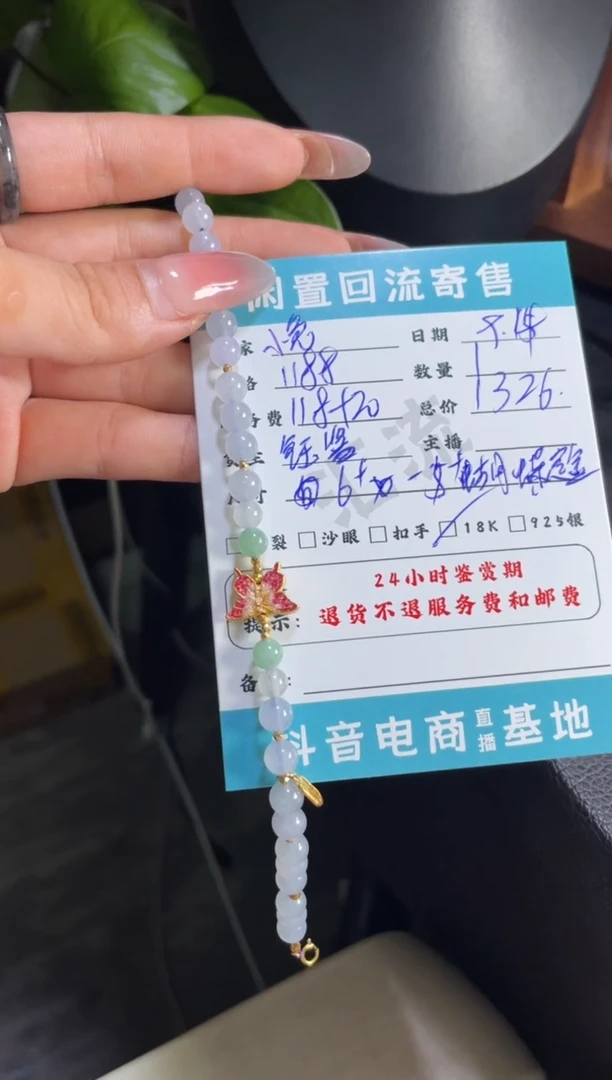 闲置回流寄售
家 小兔 日期 9.15
格 1188 数量 1
务费 118+20 总价 1326.
货主 主播
6+
裂 □沙眼 □扣手 ☑18K □925银
24小时鉴赏期
提示: 退货不退服务费和邮费
备
抖音电商直播基地